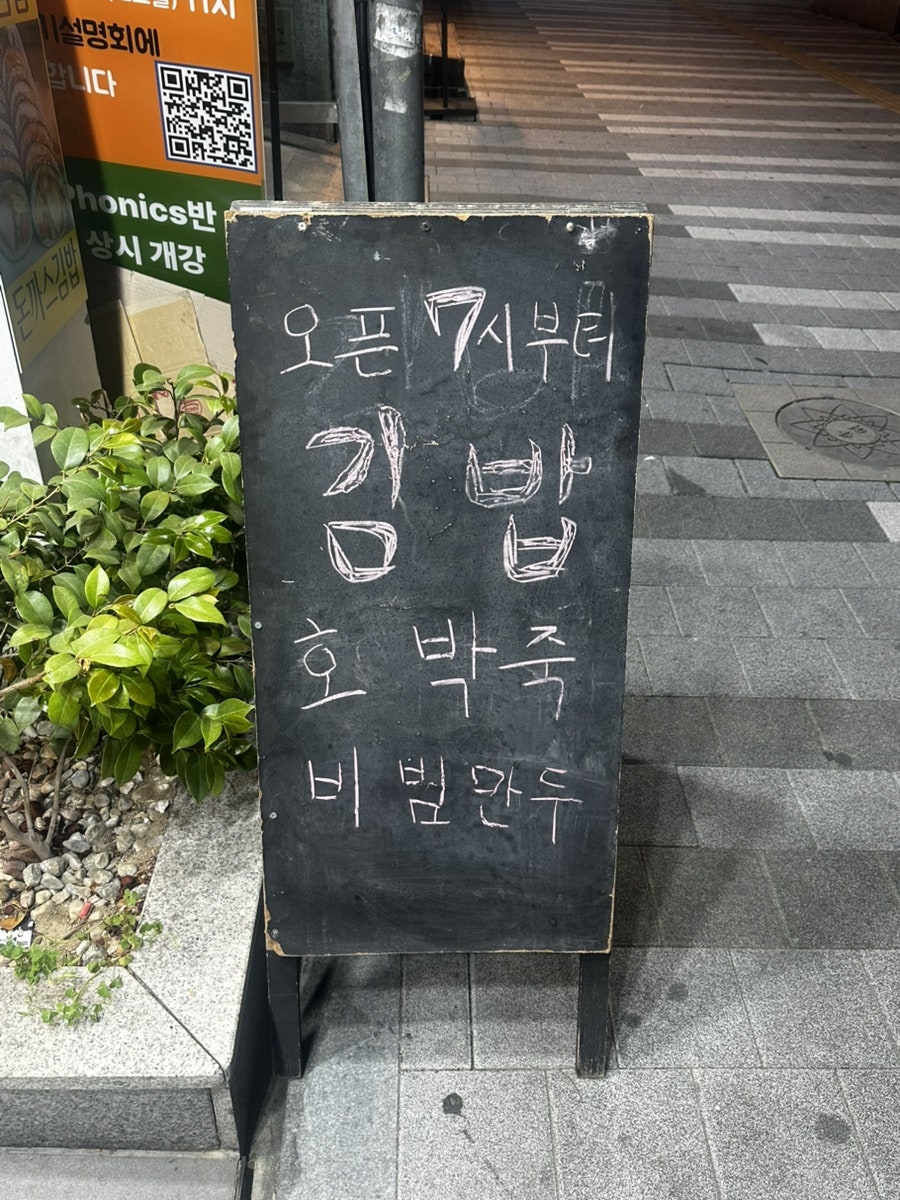 11시
설명회에
합니다
Phonics반
상시 개강
돈까스김밥
오픈 7시부터
김밥
호박죽
비빔만두